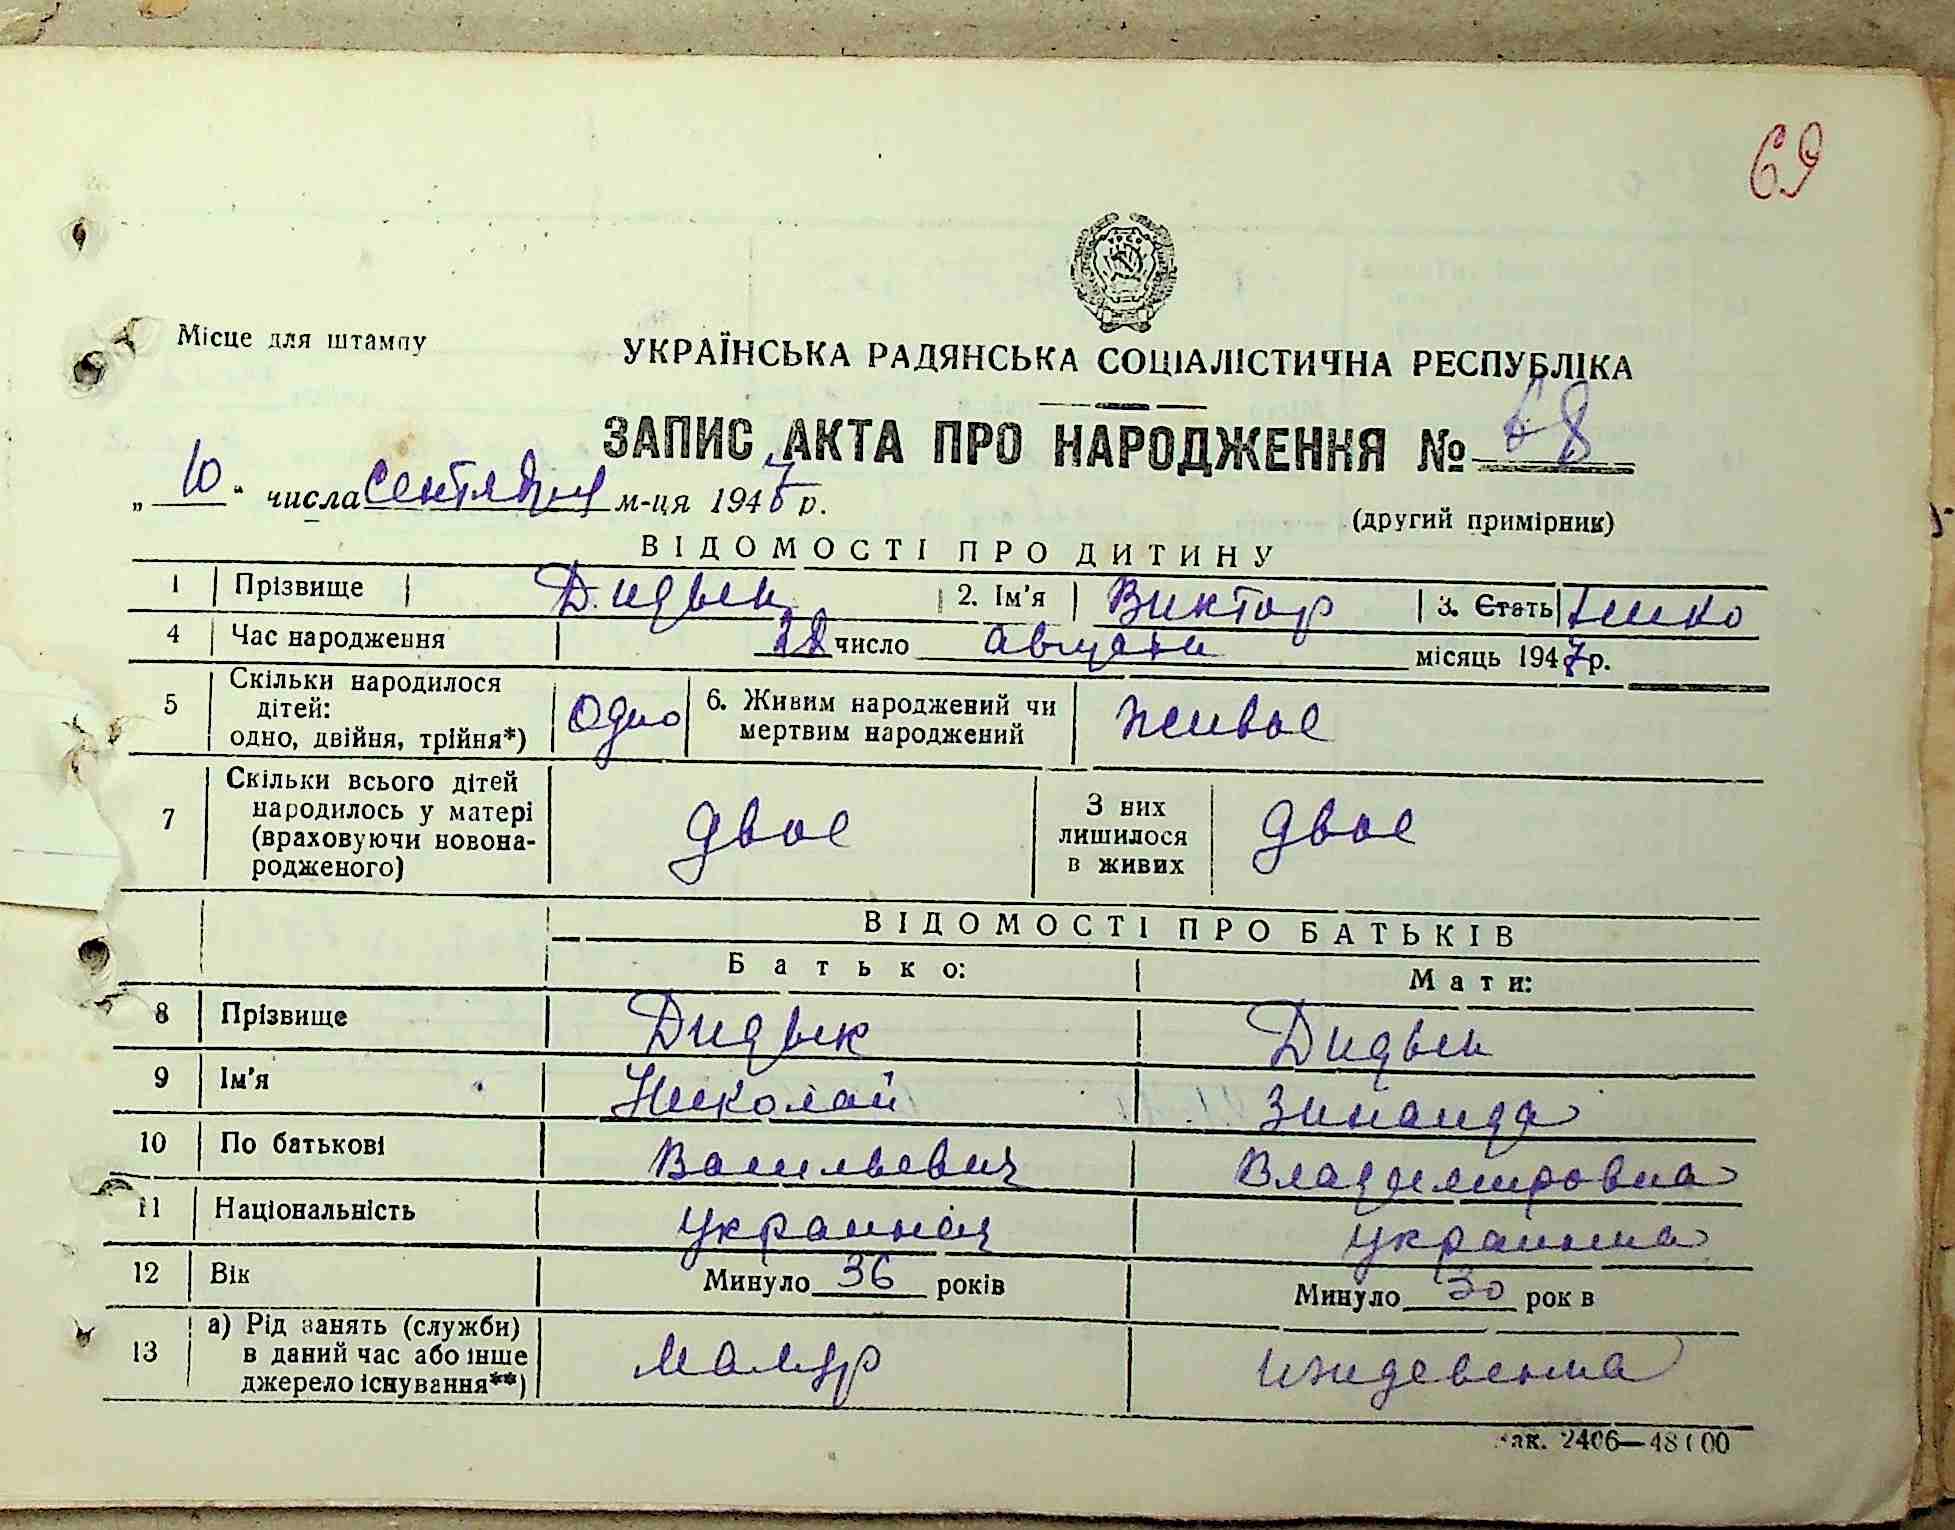 69
Місце для штампу
УКРАЇНСЬКА РАДЯНСЬКА СОЦІАЛІСТИЧНА РЕСПУБЛІКА
ЗАПИС АКТА ПРО НАРОДЖЕННЯ № 68
„10“ числа сентября м-ця 1947 р.
(другий примірник)
ВІДОМОСТІ ПРО ДИТИНУ
1 Прізвище Дидык 2. Ім'я Виктор 3. Стать
4 Час народження 22 число августа місяць 1947 р.
5 Скільки народилося дітей: одно, двійня, трійня*) одно 6. Живим народжений чи мертвим народжений живое
7 Скільки всього дітей народилось у матері (враховуючи новонародженого) двое З них лишилося в живих двое
ВІДОМОСТІ ПРО БАТЬКІВ
Батько: Мати:
8 Прізвище Дидык Дидык
9 Ім'я Николай Зинаида
10 По батькові Васильевич Владимировна
11 Національність украинец украинка
12 Вік Минуло 36 років Минуло 30 рок в
13 а) Рід занять (служби) в даний час або інше джерело існування**) маляр иждевенка
зак. 2406—48100